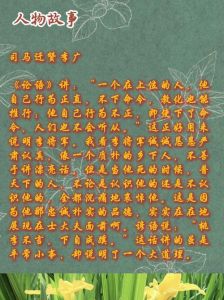 人物故事
司马迁赞李广
《论语》讲："一个在上位的人，他
自己行为正直，不下命令，教化也能
推行；他自己行为不正，即使下了命
令，人们也不会听从。"这正好用来
说明李将军，我看李将军诚诚恳恳严
肃认真，像一个质朴的乡下人，不善
于讲漂亮话，但是当他死的时候，普
天下的人，不论是认识他的还是不认
识他的，全都沉痛地哀悼他。这是因
为他那忠诚朴实的品德，实实在在地
展现在士大夫面前啊！俗语说："桃
李不言，下自成蹊。"这话讲的虽是
年常小事，却说明了一个大道理。